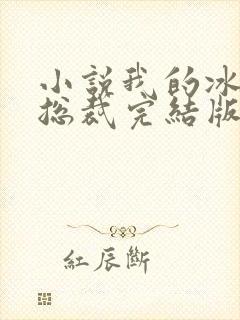 小說我的冰
總裁完結版
紅辰斷